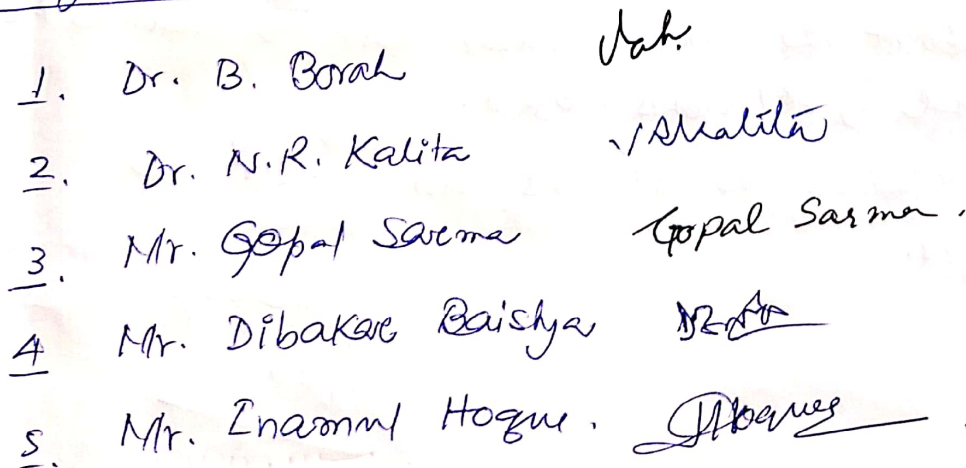 1. Dr. B. Borah
2. Dr. N.R. Kalita Kalita
3. Mr. Gopal Sarma Gopal Sarma.
4 Mr. Dibakar Baishya
5. Mr. Inamul Hoque. Hoque